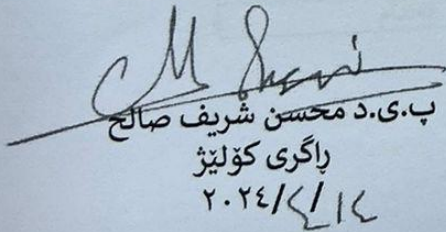 پ.ی.د محسن شریف صالح
ڕاگری کۆلێژ
٢٠٢٤/٤/١٤